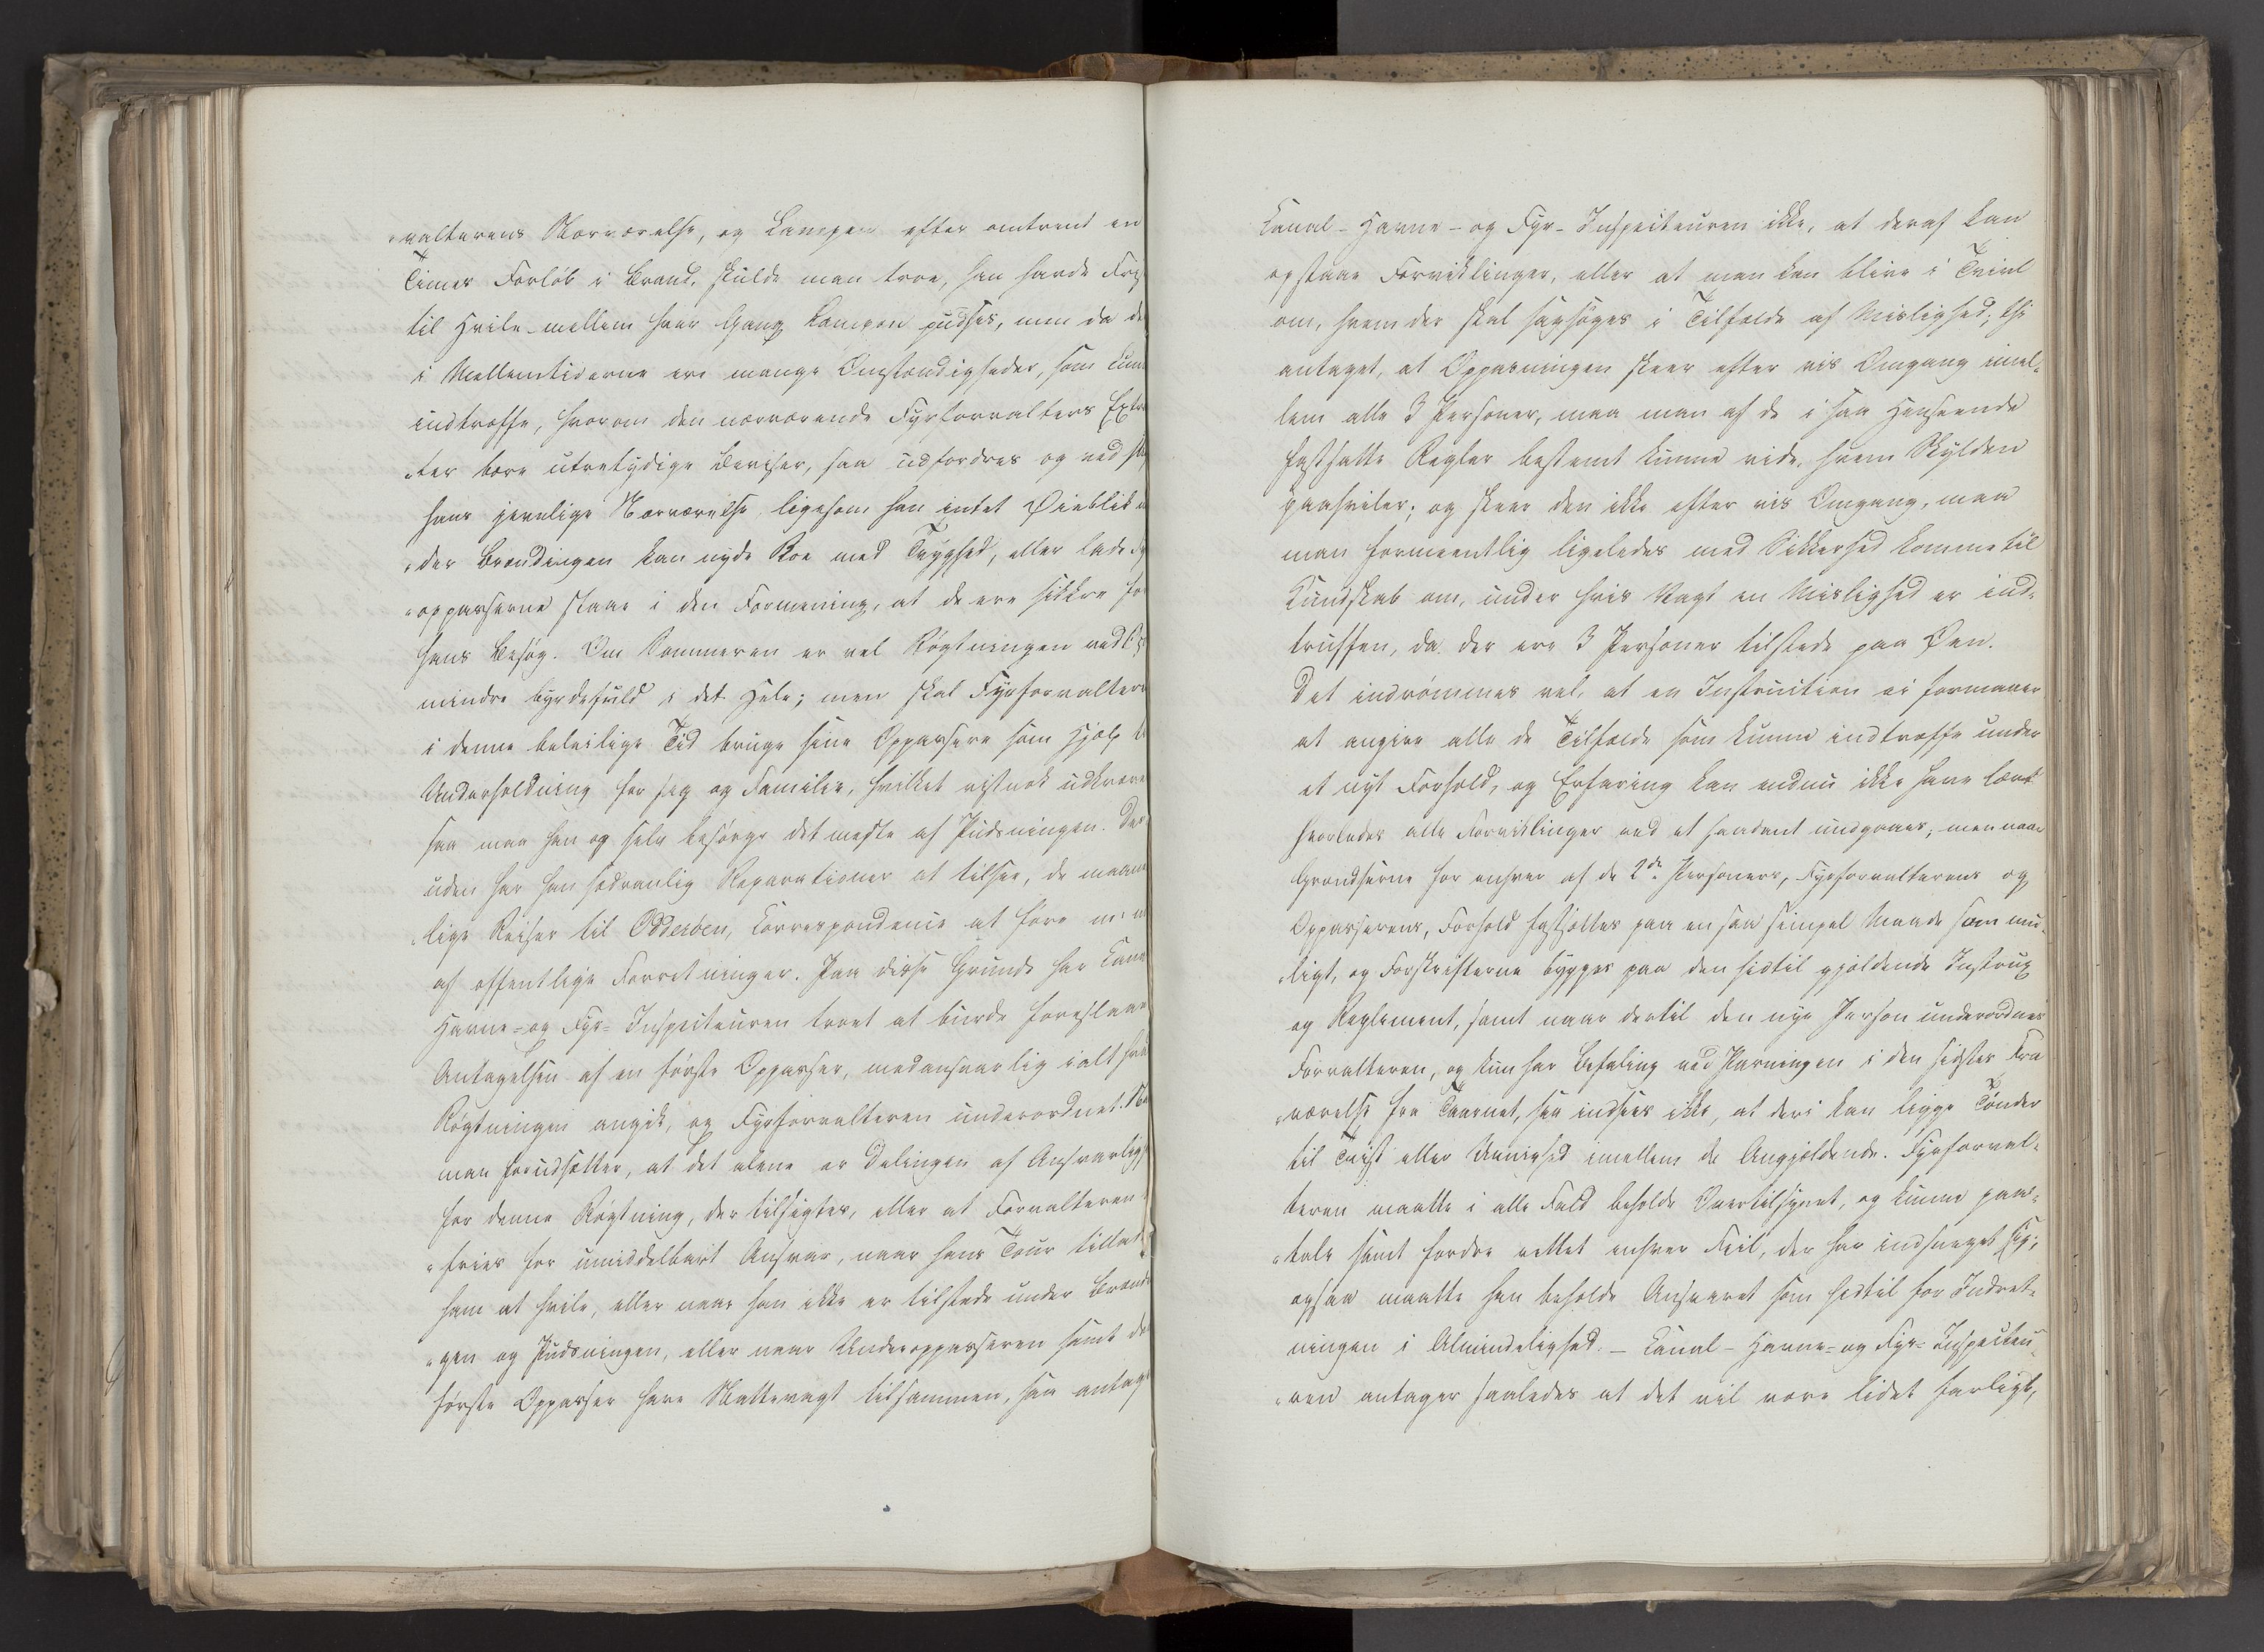 „valterens Nærværelse, og Lampen efter omtrent en
Times Forløb i Brand, skulde man troe, han havde Fri
til Hvile mellem hver Gang Lampen pudses, men da de
i Mellemtiderne ere mange Omstændigheder, som kun
indtræffe, hvorom den nærværende Fyrforvalters Extra
„ter bære utvetydige Beviser, saa udfordres og ved
hans jevnlige Nærværelse, ligesom han intet Øieblik
„der Brændingen kan nyde Roe med Tryghed, eller lade
„oppasserne staae i den Formening, at de ere sikkre for
hans Besøg. Om Sommeren er vel Røgtningen
mindre byrdefuld i det Hele; men skal Fyrforvaltere
i denne beleilige Tid bruge sine Oppassere som Hjælp
Underholdning for sig og Familie, hvilket vistnok udkræve
saa maa han og selv besørge det meste af Pudsningen. Des
uden har han sædvanlig Reparationer at tilsee, de maane
„lige Reiser til Odderøen, Correspondence at føre
af offentlige Forretninger. Paa disse Grunde har Canal
Havne- og Fyr-Inspecteuren troet at burde foreslaae
Antagelsen af en første Oppasser, medansvarlig i alt hvad
Røgtningen angik, og Fyrforvalteren underordnet.
man forudsætter, at det alene er Delingen af Ansvarligh
for denne Røgtning, der tilsigtes, eller at Forvalteren
„fries for umiddelbart Ansvar, naar hans Tour tillad
ham at hvile, eller naar han ikke er tilstede under Brændi
„gen og Pudsningen, eller naar Underoppasseren samt de
første Oppasser have Nattevagt tilsammen, saa antag
Canal- Havne- og Fyr-Inspecteuren ikke, at deraf kan
opstaae Forviklinger, eller at man kan blive i Tvivl
om, hvem der skal sagsøges i Tilfælde af Mislighed; thi
antaget, at Oppasningen skeer efter vis Omgang imel„
lem alle 3 Personer, maa man af de i saa Henseende
fastsatte Regler bestemt kunne vide, hvem Skylden
paahviler; og skeer den ikke efter vis Omgang, maa
man formeentlig ligeledes med Sikkerhed komme til
Kundskab om, under hvis Vagt en Mislighed er ind„
truffen, da der ere 3 Personer tilstede paa Øen.
Det indrømmes vel, at en Instruction ei formaaer
at angive alle de Tilfælde som kunne indtræffe under
et nyt Forhold, og Erfaring kan endnu ikke have lært
hvorledes alle Forviklinger ved et saadant undgaaes; men naar
Grændserne for enhver af de 2de Personers, Fyrforvalterens og
Oppasserens, Forhold fastsættes paa en saa simpel Maade som mu„
„ligt, og Forskrifterne bygges paa den hidtil gjældende Instrux
og Reglement, samt naar dertil den nye Person underordnes
Forvalteren, og kun har Befaling ved Pasningen i den sidstes Fra
„værelse fra Taarnet, saa indsees ikke, at deri kan ligge Tønder
til Tvist eller Uenighed imellem de Angjældende. Fyrforval„
teren maatte i alle Fald beholde Overtilsynet, og kunne paa„
„tale samt fordre rettet enhver Feil, der har indsneget sig;
ogsaa maatte han beholde Ansvaret som hidtil for Indret„
ningen i Almindelighed. – Canal- Havne- og Fyr-Inspecteu„
„ren antager saaledes at det vil være lidet farligt,